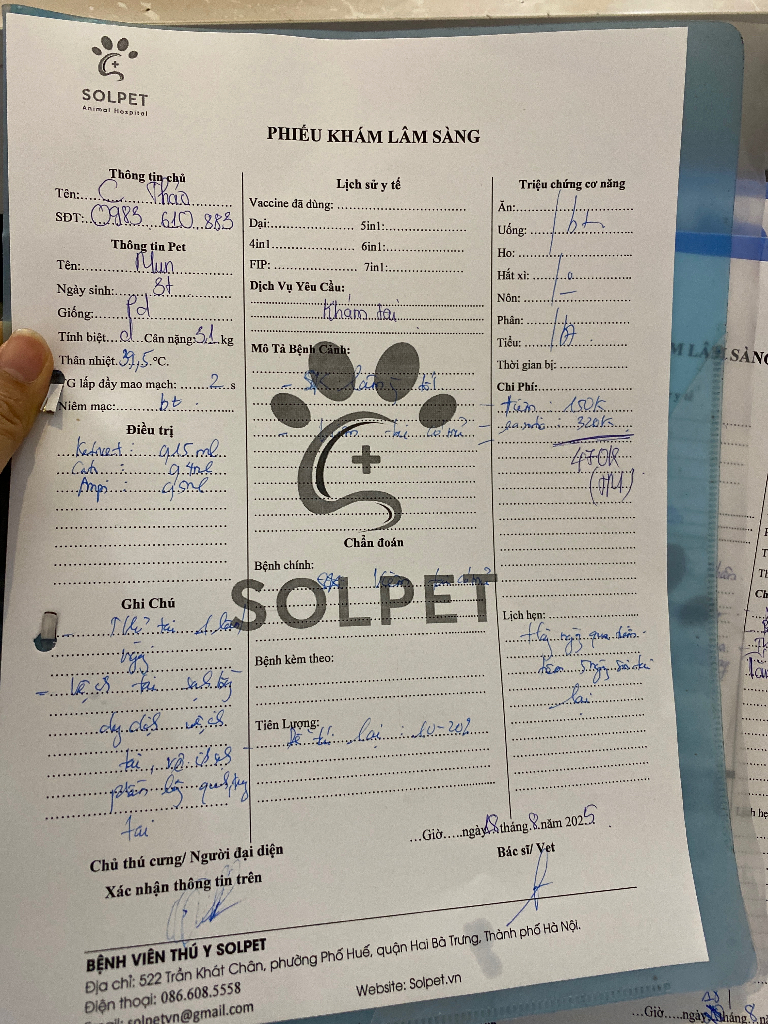 SOLPET
Animal Hospital
PHIẾU KHÁM LÂM SÀNG
Thông tin chủ
Tên: C Thảo
SĐT: 0983 610 883
Thông tin Pet
Tên: Mun
Ngày sinh: 8t
Giống: Pd
Tính biệt: ♂ Cân nặng: 3,1 kg
Thân nhiệt: 39,5 °C.
TG lấp đầy mao mạch: 2 s
Niêm mạc: bt
Điều trị
Ketovest: 0,15 ml
Cat: 0,4ml
Ampi: 0,5ml
Ghi Chú
- Nhỏ tai 1 lần
ngày
- Vệ sinh tai sạch bằng
dung dịch vệ sinh
tai, vệ sinh
phần quanh
tai
Lịch sử y tế
Vaccine đã dùng:
Dại: 5in1:
4in1 6in1:
FIP: 7in1:
Dịch Vụ Yêu Cầu:
Khám tai
Mô Tả Bệnh Cảnh:
- tai
Chẩn đoán
Bệnh chính:
Viêm tai
SOLPET
Bệnh kèm theo:
Tiên Lượng:
lại: 10-20%
Triệu chứng cơ năng
Ăn:
Uống: bt
Ho:
Hắt xì:
Nôn: -
Phân:
Tiểu: bt
Thời gian bị:
Chi Phí:
tiêm: 150K
320K
470K
(TM)
Lịch hẹn:
Hằng ngày qua tiêm
5 ngày
lại
...Giờ.....ngày 18 tháng 8 năm 2025
Chủ thú cưng/ Người đại diện
Xác nhận thông tin trên
Bác sĩ/ Vet
BỆNH VIỆN THÚ Y SOLPET
Địa chỉ: 522 Trần Khát Chân, phường Phố Huế, quận Hai Bà Trưng, Thành phố Hà Nội.
Điện thoại: 086.608.5558
Website: Solpet.vn
Email: solpetvn@gmail.com
...Giờ.....ngày 28 tháng 8 năm